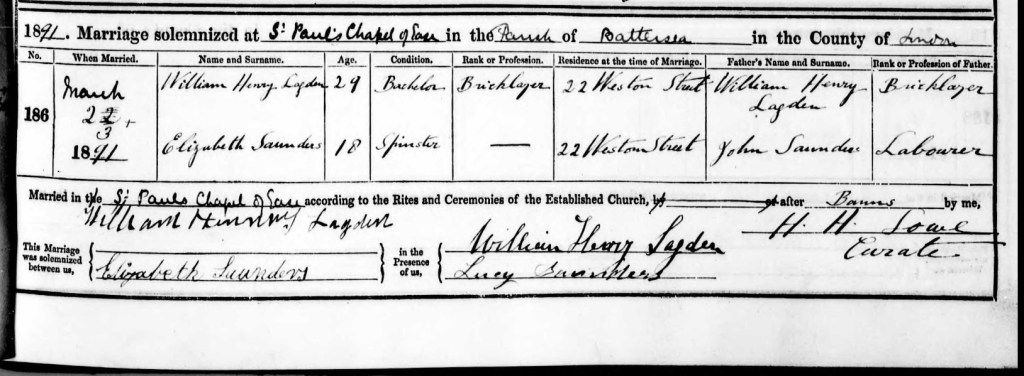 1891. Marriage solemnized at St Paul's Chapel of Ease in the Parish of Battersea in the County of London
No. When Married. Name and Surname. Age. Condition. Rank or Profession. Residence at the time of Marriage. Father's Name and Surname. Rank or Profession of Father.
186 March 22 3 1891
William Henry Lagden 29 Bachelor Bricklayer 22 Weston Street William Henry Lagden Bricklayer
Elizabeth Saunders 18 Spinster — 22 Weston Street John Saunders Labourer
Married in the St Pauls Chapel of Ease according to the Rites and Ceremonies of the Established Church, by or after Banns by me,
William Henry Lagden
H. H.
Curate
This Marriage was solemnized between us,
Elizabeth Saunders
in the Presence of us,
William Henry Lagden
Lucy Saunders